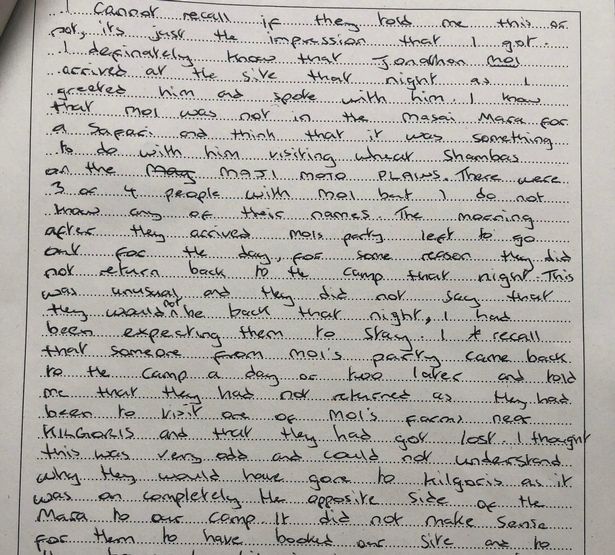 I cannot recall if they told me this or
not, its just the impression that I got.
I definately know that Jonathon MOI
arrived at the site that night as I
greeted him and spoke with him. I know
that MOI was not in the Masai Mara for
a Safari and think that it was something
to do with him visiting wheat Shambas
on the MAJI MOTO PLAINS. There were
3 or 4 people with MOI but I do not
know any of their names. The morning
after they arrived MOIs party left to go
out for the day, for some reason they did
not return back to the camp that night. This
was unusual and they did not say that
they would not be back that night, I had
been expecting them to stay. I recall
that someone from MOI's party came back
to the camp a day or two later and told
me that they had not returned as they had
been to visit one of MOI's farms near
KILGORIS and that they had got lost. I thought
this was very odd and could not understand
why they would have gone to Kilgoris as it
was on completely the opposite side of the
Mara to our camp. It did not make sense
for them to have booked our site and to